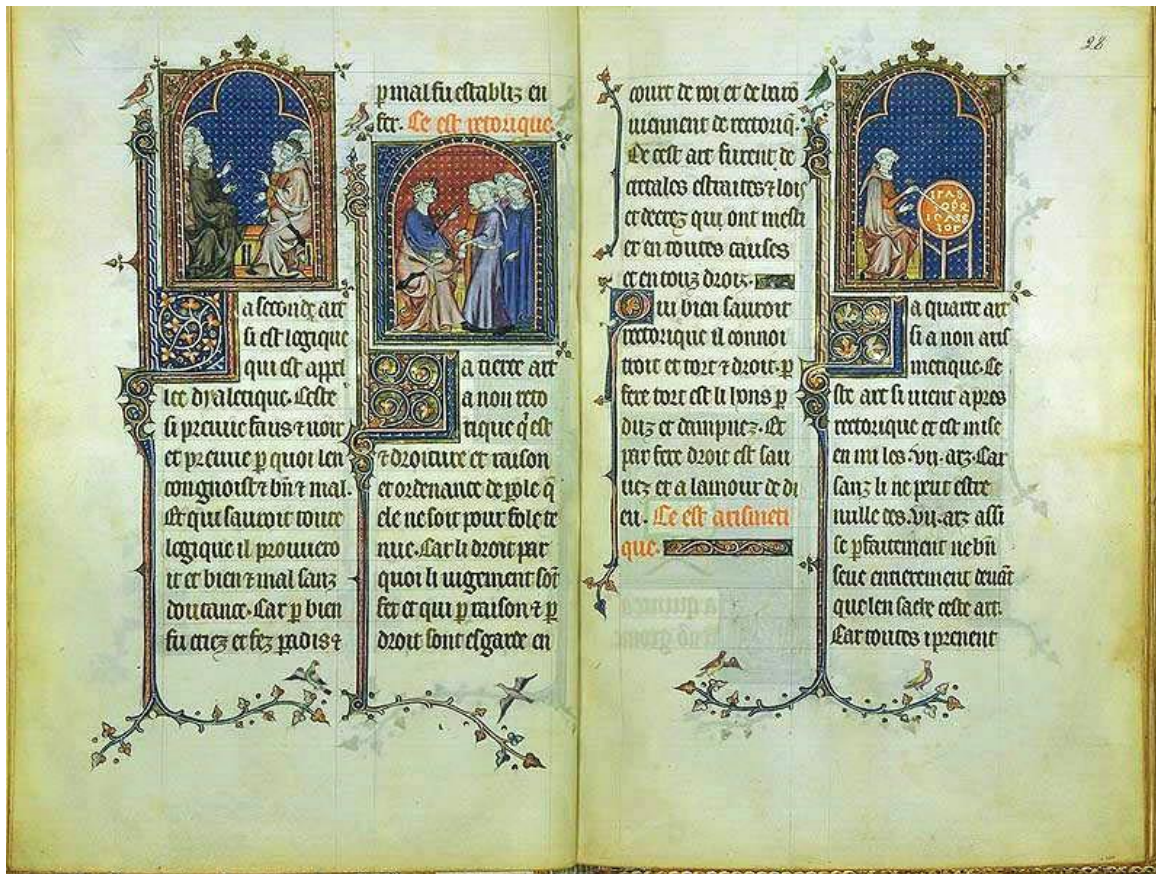 a seconde art
si est logique
qui est appel
lee dyaletique. Ceste
si preuue faus ⁊ uoir
et preuue p quoi len
congnoist ⁊ bñ ⁊ mal.
Et qui sauroit toute
logique il prouuero
it et bien ⁊ mal sanz
doutance. Car p bien
fu creez et fez padis ⁊
p mal fu establiz en
fer. Ce est retorique
a tierce art
a non reto
rique q̃ est
⁊ droiture et raison
et ordenance de pole q̃
ele ne soit pour fole te
nue. Car li droit par
quoi li iugement sõt
fet et qui p raison ⁊ p
droit sont esgarde en
28
court de roi et de baro
uiennent de rectoriq.
De cest art furent de
cretales estraites ⁊ lois
et decrez qui ont mesti
et en toutes causes
et en touz droiz.
Qui bien sauroit
rectorique il connoi
troit et tort ⁊ droit. p
fere tort est li hons p
duz et dampnez. Et
par fere droit est sau
uez et a lamour de di
eu. Ce est arismeti
que.
a quarte art
si a non aris
metique. Ce
ste art si uient apres
rectorique et est mise
en mi les .vii. arz. Car
sanz li ne peut estre
nulle des .vii. arz assi
se pfaitement ne bñ
seue entierement deuãt
que len sache ceste art.
Car toutes i prenent